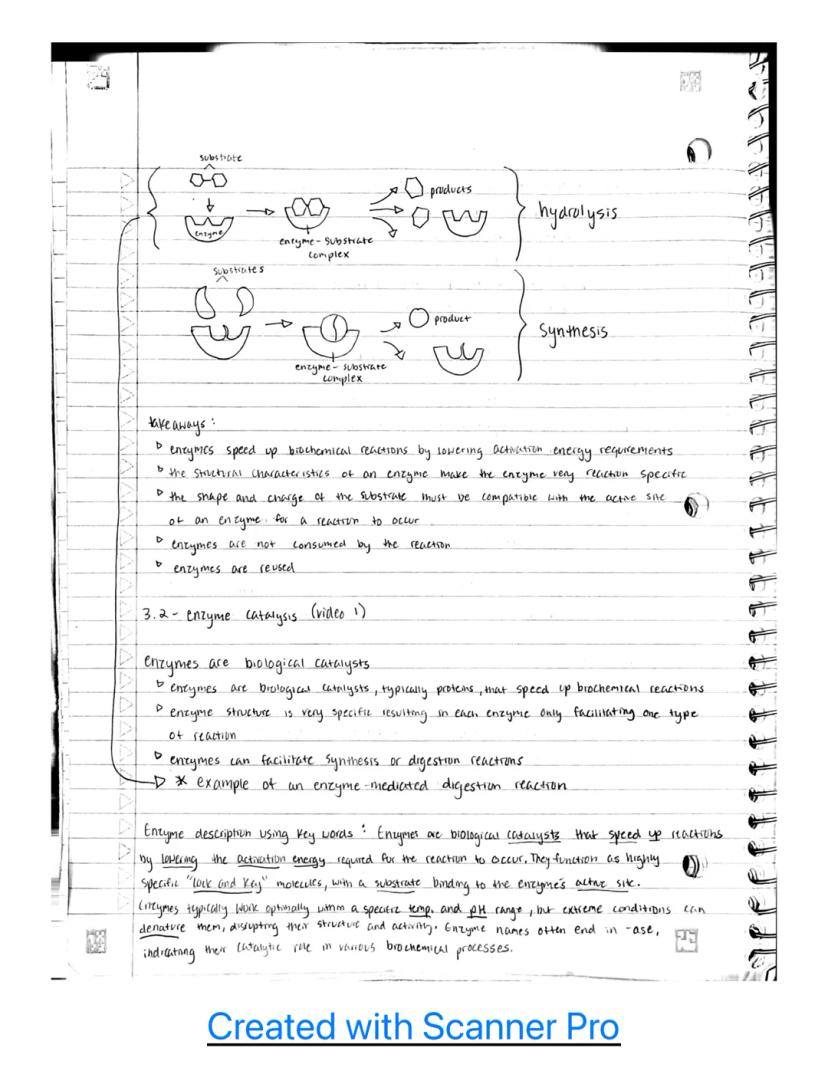 substrate
enzyme
enzyme-substrate
complex
products
hydrolysis
substrates
enzyme-substrate
complex
product
Synthesis
takeaways:
enzymes speed up biochemical reactions by lowering activation energy requirements
the structural characteristics of an enzyme make the enzyme very reaction specific
the shape and charge of the substrate must be compatible with the active site
of an enzyme for a reaction to occur
enzymes are not consumed by the reaction
enzymes are reused
3.2 - enzyme catalysis (video 1)
enzymes are biological catalysts
enzymes are biological catalysts, typically proteins, that speed up biochemical reactions
enzyme structure is very specific resulting in each enzyme only facilitating one type
of reaction
enzymes can facilitate synthesis or digestion reactions
* example of an enzyme-mediated digestion reaction
Enzyme description using key words: Enzymes are biological catalysts that speed up reactions
by lowering the activation energy required for the reaction to occur. They function as highly
specific "lock and key" molecules, with a substrate binding to the enzyme's active site.
Enzymes typically work optimally within a specific temp. and pH range, but extreme conditions can
denature them, disrupting their structure and activity. Enzyme names often end in -ase,
indicating their catalytic role in various biochemical processes.
Created with Scanner Pro